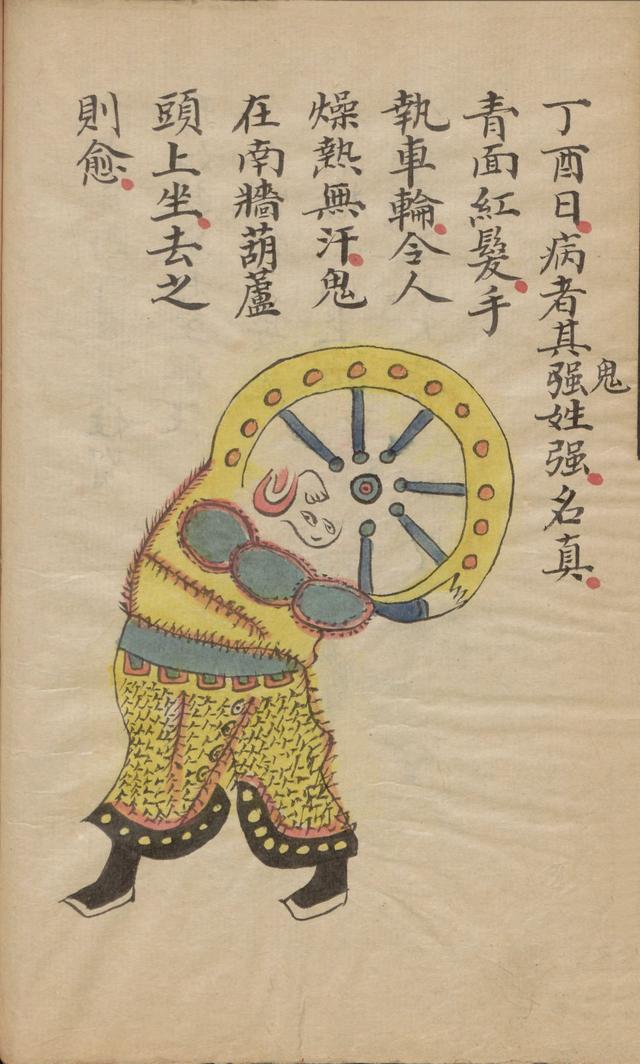 丁酉日病者其强姓强名真
鬼
青面紅髮手
執車輪令人
燥熱無汗鬼
在南牆葫蘆
頭上坐去之
則愈